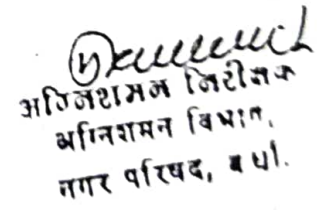 अग्निशमन निरीक्षक
अग्निशमन विभाग,
नगर परिषद, वर्धा.